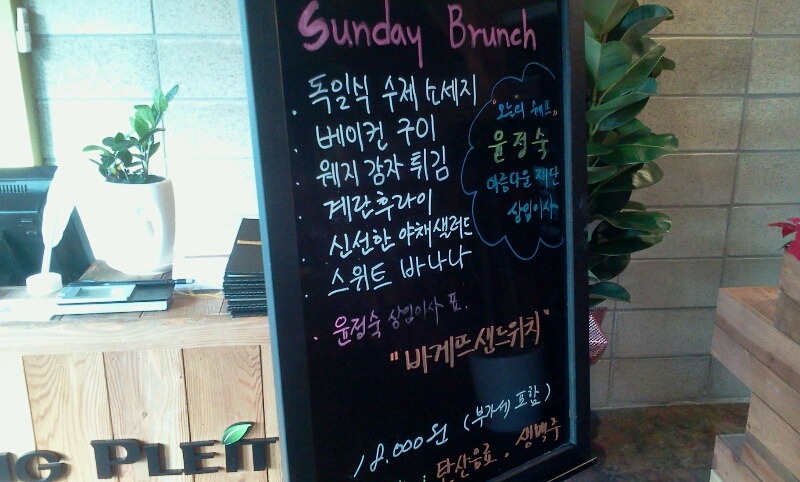 Sunday Brunch
. 독일식 수제 소세지
. 베이컨 구이
. 웨지 감자 튀김
. 계란후라이
. 신선한 야채샐러드
. 스위트 바나나
"오늘의 쉐프"
윤정숙
아름다운 재단
상임이사
. 윤정숙 상임이사 표.
"바게뜨샌드위치"
18.000원 (부가세 포함)
: 탄산음료 . 생맥주
NG PLEIT